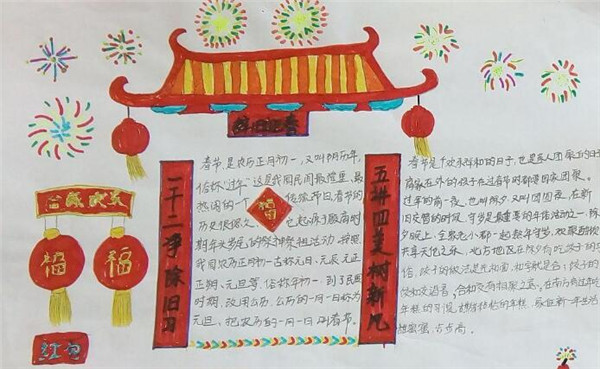 辞旧迎春
恭贺欢庆
福
福
红包
一干二净除旧习
五讲四美树新风
福
春节,是农历正月初一,又叫阴历年,
俗称"过年"这是我国民间最隆重、最
热闹的一个 传统节日。春节的
历史很悠久, 它起源于殷商时
期年头岁尾的祭神祭祖活动。按照
我国农历正月初一古称元日、元辰、元正
正朔、元旦等,俗称年初一,到了民国
时期,改用公历,公历的一月一日称为
元旦,把农历的一月一日叫春节。
春节是个欢乐祥和的日子,也是家人团聚的日子
离家在外的孩子在过春节时都要回家团聚。
过年的前一夜,也叫除夕又叫团圆夜,在新
旧交替的时候,守岁是最重要的年俗活动之一,除
夕晚上,全家老小都一起熬年守岁,欢聚酣饮
共享天伦之乐,北方地区在除夕有吃饺子的习
俗,饺子的做法是先和面,和字就是合;饺子的
饺和交谐音,合和交有相聚之意,在南方有过年吃
年糕的习惯,